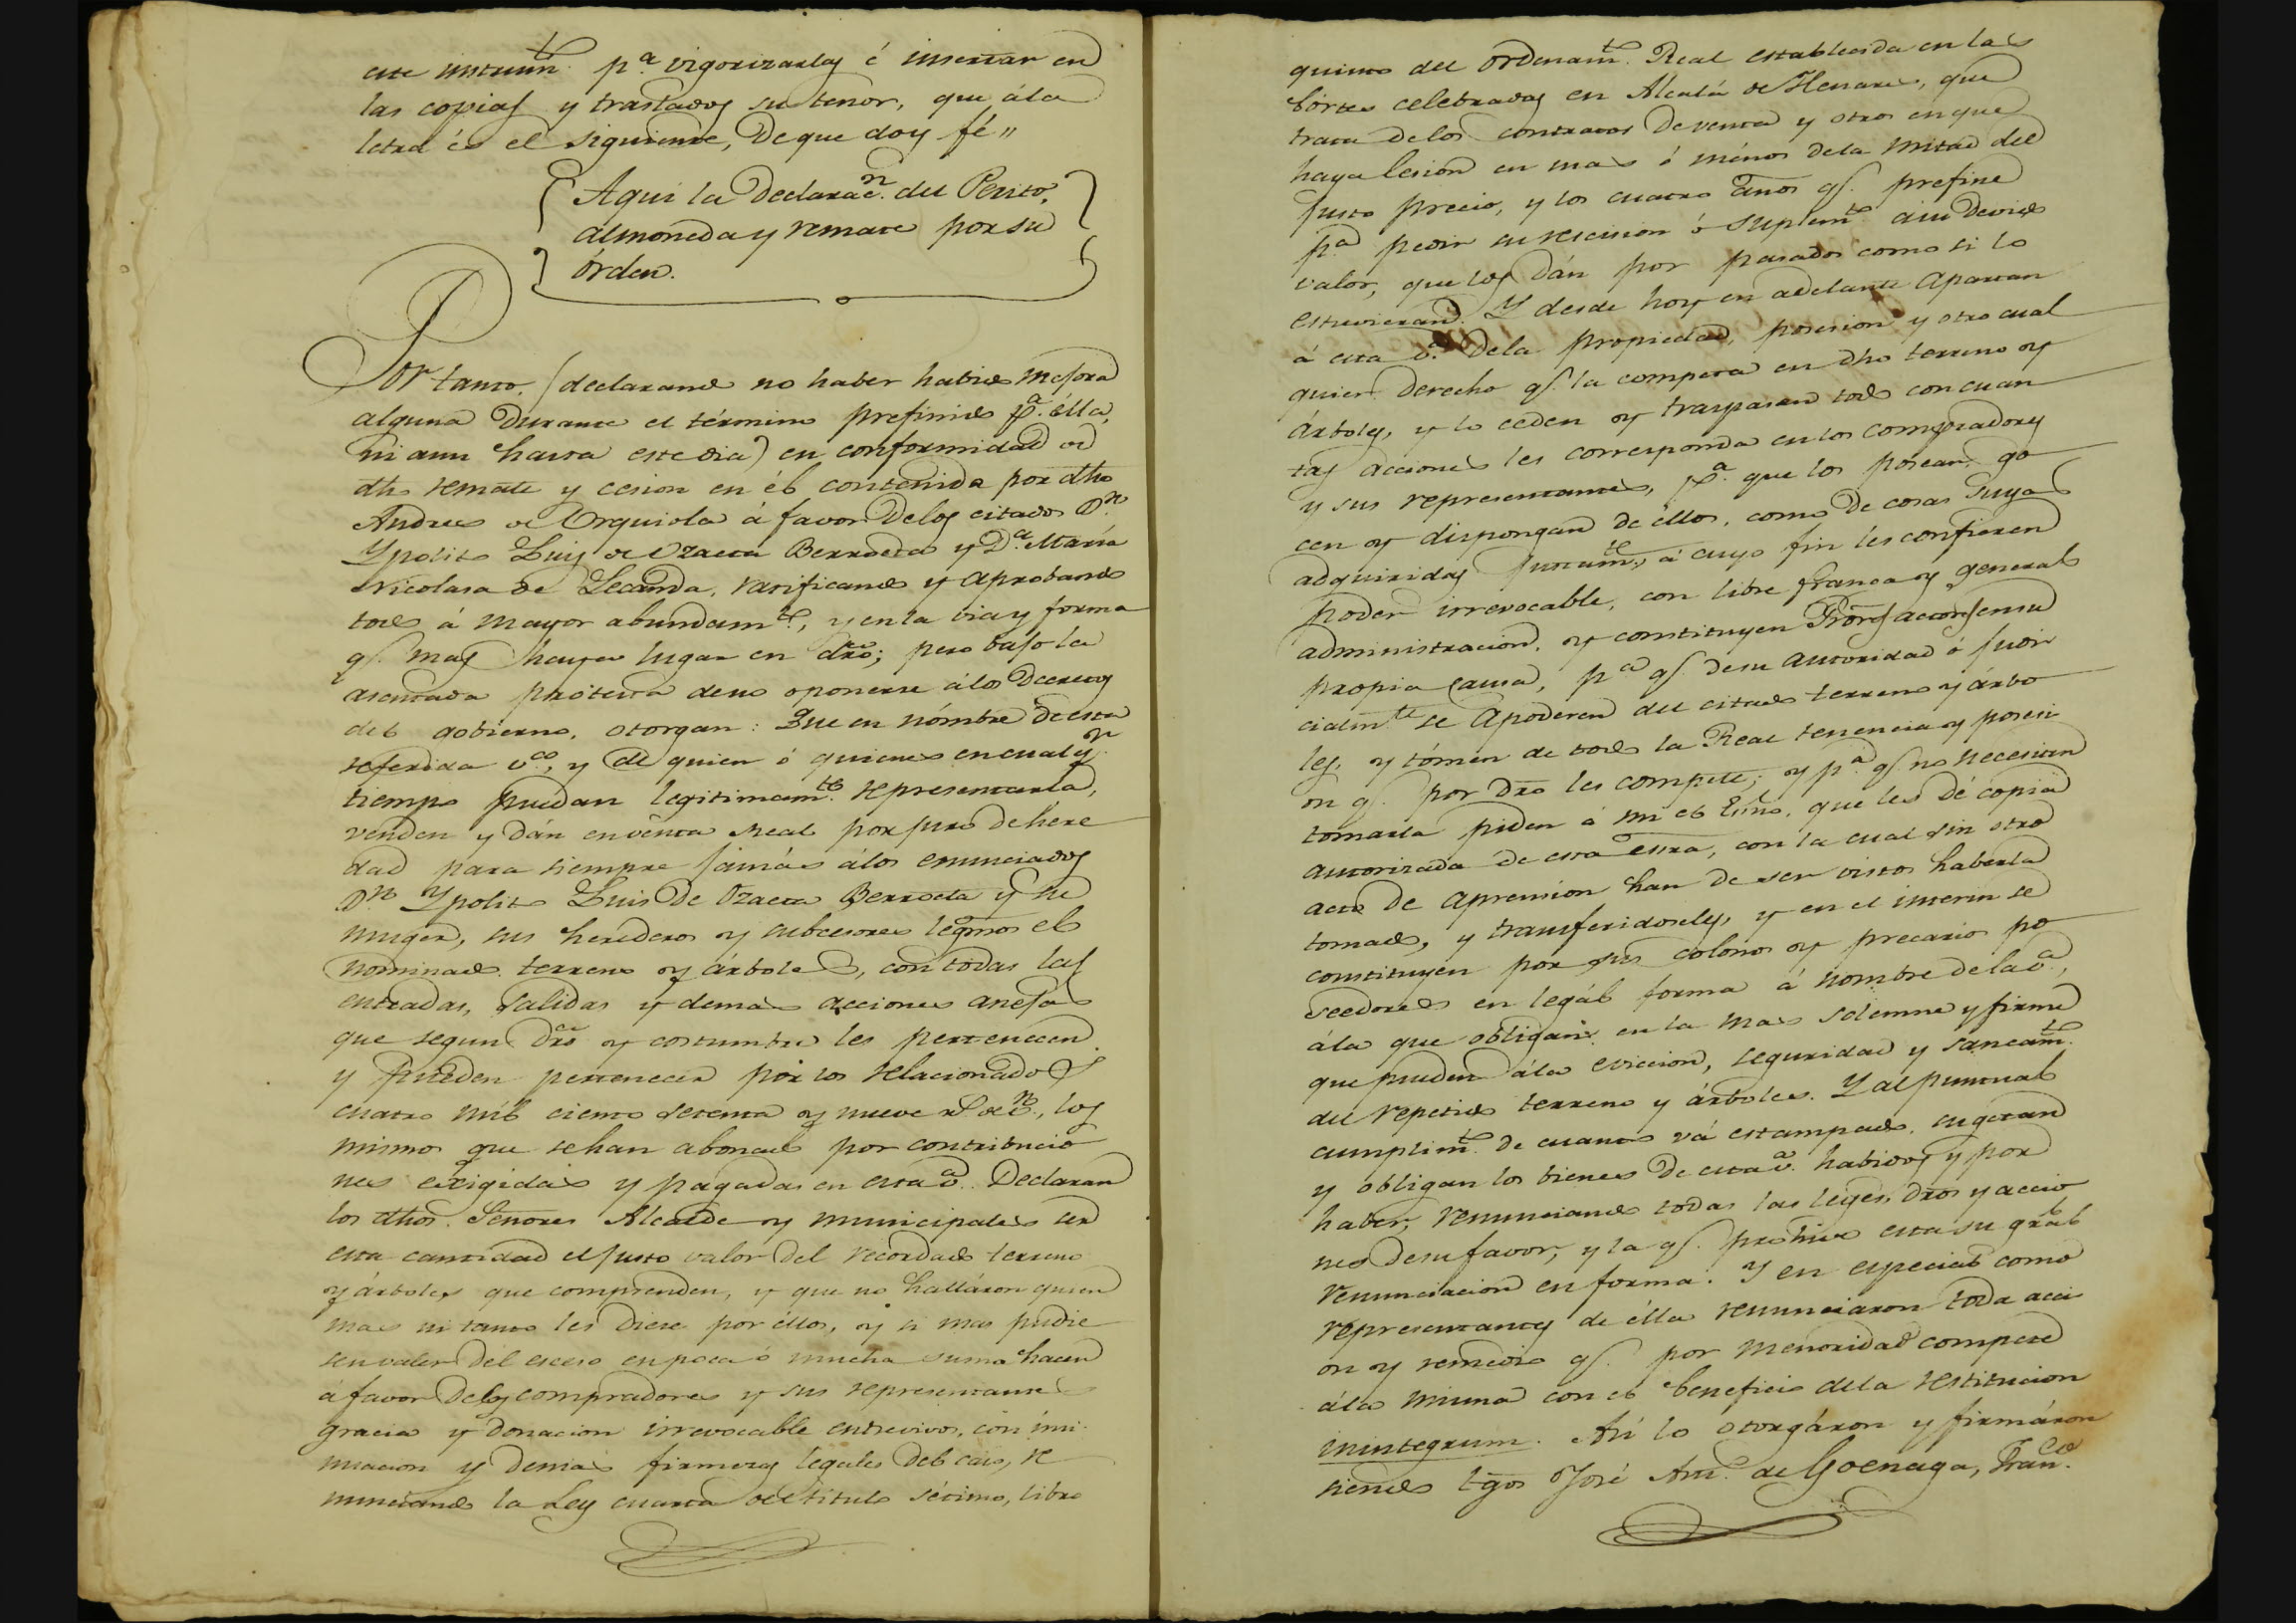 este instrum.to p.a vigorizarlas é insertar en
las copias y traslados su tenor, que á la
letra és el siguiente, de que doy fé //
Aqui la Declarac.n del Perito,
almoneda y remate por su
órden.
Por tanto, (declarando no haber habido mejora
alguna durante el término prefinido p.a élla,
ni aun hasta este dia) en conformidad de
dho remate y cesion en él contenida por dho
Andres de Orquiola á favor de los citados D.n
Ypolito Luis de Ozaeta Berroeta y D.a María
Nicolasa de Lecanda, ratificando y aprobando
todo á mayor abundam.to, y en la via y forma
q.e mas haya lugar en dro; pero bajo la
asentada protesta de no oponerse á los Decretos
del gobierno, otorgan: Que en nómbre de esta
referida v.a, y de quien ó quienes en cualq.r
tiempo puedan legitimam.te representarla,
venden y dán en venta Real por juro de here
dad para siempre jamás á los enunciados
D.n Ypolito Luis de Ozaeta Berroeta y su
muger, sus herederos y subcesores legmos el
nominado terreno y árboles, con todas las
entradas, salidas y demas acciones anejas
que segun dro y costumbre les pertenecen
y pueden pertenecer por los relacionados
cuatro mil ciento setenta y nueve r.s de v.n, los
mismos que se han abonado por contribucio
nes exigidas y pagadas en esta v.a Declaran
los dhos Señores Alcalde y municipales ser
esta cantidad el justo valor del recordado terreno
y árboles que comprenden, y que no halláron quien
mas ni tanto les diese por éllos, y si mas pudie
sen valer del esceso en poca ó mucha suma hacen
á favor de los compradores y sus representantes
gracia y donacion irrevocable entrevivos, con insi
nuacion y demás firmezas legales del caso, re
nunciando la Ley cuarta del título sétimo, libro
quinto del ordenam.to Real establecida en las
Córtes celebradas en Alcalá de Henares, que
trata de los contratos de venta y otros en que
haya lesion en mas ó ménos de la mitad del
justo precio, y los cuatro años q.e prefine
p.a pedir su rescision ó suplem.to á su devido
valor, que los dán por pasados como si lo
estuvieran. Y desde hoy en adelante apartan
á esta v.a de la propiedad, posesion y otro cual
quier derecho q.e la competa en dho terreno y
árboles, y lo ceden y traspasan todo con cuan
tas acciones les corresponda en los compradores
y sus representantes, p.a que los posean, go
cen y dispongan de éllos, como de cosas suyas
adquiridas justam.te, á cuyo fin les confieren
poder irrevocable, con libre franca y general
administracion, y constituyen Prores actores en su
propia causa, p.a q.e de su autoridad ó judi
cialm.te se apoderen del citado terreno y árbo
les, y tómen de todo la Real tenencia y posesi
on q.e por dro les compete; y p.a q.e no necesiten
tomarla piden á mi el Esno. que les dé copia
autorizada de esta essra, con la cual sin otro
acto de aprension han de ser vistos haberla
tomado, y transferídoseles, y en el interin se
constituyen por sus colonos y precario po
seedores en legál forma á nombre de la v.a,
á la que obligan en la mas solemne y firme
que pueden á la eviccion, seguridad y saneam.to
del repetido terreno y árboles. Y al puntual
cumplim.to de cuanto vá estampado, sugetan
y obligan los bienes de esta v.a habidos y por
haber, renunciando todas las leyes, dros y accio
nes de su favor, y la q.e prohive esta su gral
renunciacion en forma. Y en especial como
representantes de élla renunciaron toda acci
on y remedio q.e por menoridad compete
á la misma con el beneficio de la restitucion
inintegrum. Así lo otorgáron y firmáron
siendo tgos José Ant.o de Goenaga, Fran.co